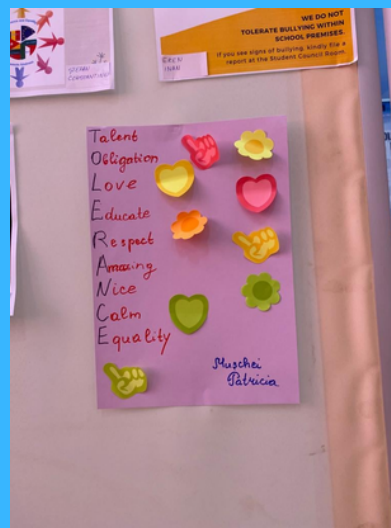 WE DO NOT
TOLERATE BULLYING WITHIN
SCHOOL PREMISES.
If you see signs of bullying, kindly file a
report at the Student Council Room.
Talent
Obligation
Love
Educate
Respect
Amazing
Nice
Calm
Equality
Muschei
Patricia